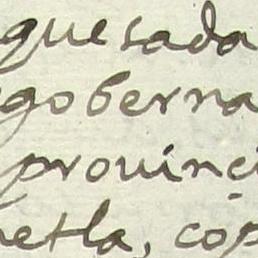 quesada
goberna
prouinçi
etla, cop